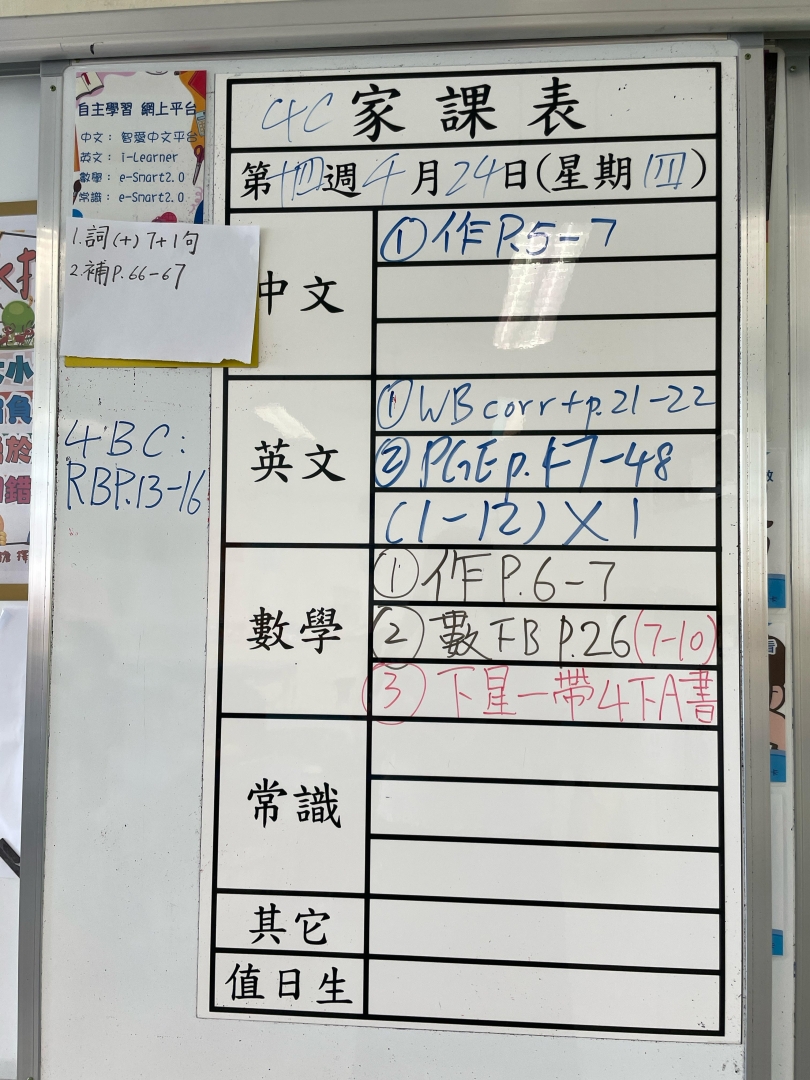 自主學習 網上平台
中文： 智愛中文平台
英文： i-Learner
數學： e-Smart2.0
常識： e-Smart2.0
1.詞(十)7+1句
2.補P.66-67
4BC:
RBP.13-16
4C 家課表
第十四週 4月24日(星期四)
中文
①作P.5-7
英文
①WB corr+p.21-22
②PGE p.47-48
(1-12)×1
數學
①作P.6-7
②數下B P.26(7-10)
③下星一帶4下A書
常識
其它
值日生